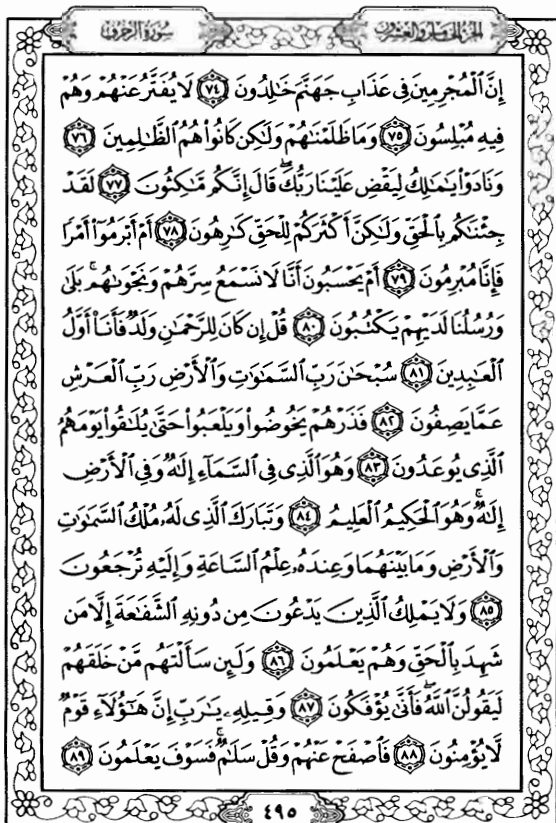 سُورَةُ الزُّخْرُفِ
الجُزْءُ الخَامِسُ وَالعِشْرُونَ
إِنَّ ٱلْمُجْرِمِينَ فِى عَذَابِ جَهَنَّمَ خَٰلِدُونَ ٧٤ لَا يُفَتَّرُ عَنْهُمْ وَهُمْ
فِيهِ مُبْلِسُونَ ٧٥ وَمَا ظَلَمْنَٰهُمْ وَلَٰكِن كَانُوا۟ هُمُ ٱلظَّٰلِمِينَ ٧٦
وَنَادَوْا۟ يَٰمَٰلِكُ لِيَقْضِ عَلَيْنَا رَبُّكَ ۖ قَالَ إِنَّكُم مَّٰكِثُونَ ٧٧ لَقَدْ
جِئْنَٰكُم بِٱلْحَقِّ وَلَٰكِنَّ أَكْثَرَكُمْ لِلْحَقِّ كَٰرِهُونَ ٧٨ أَمْ أَبْرَمُوٓا۟ أَمْرًا
فَإِنَّا مُبْرِمُونَ ٧٩ أَمْ يَحْسَبُونَ أَنَّا لَا نَسْمَعُ سِرَّهُمْ وَنَجْوَىٰهُم ۚ بَلَىٰ
وَرُسُلُنَا لَدَيْهِمْ يَكْتُبُونَ ٨٠ قُلْ إِن كَانَ لِلرَّحْمَٰنِ وَلَدٌ فَأَنَا۠ أَوَّلُ
ٱلْعَٰبِدِينَ ٨١ سُبْحَٰنَ رَبِّ ٱلسَّمَٰوَٰتِ وَٱلْأَرْضِ رَبِّ ٱلْعَرْشِ
عَمَّا يَصِفُونَ ٨٢ فَذَرْهُمْ يَخُوضُوا۟ وَيَلْعَبُوا۟ حَتَّىٰ يُلَٰقُوا۟ يَوْمَهُمُ
ٱلَّذِى يُوعَدُونَ ٨٣ وَهُوَ ٱلَّذِى فِى ٱلسَّمَآءِ إِلَٰهٌ وَفِى ٱلْأَرْضِ
إِلَٰهٌ ۚ وَهُوَ ٱلْحَكِيمُ ٱلْعَلِيمُ ٨٤ وَتَبَارَكَ ٱلَّذِى لَهُۥ مُلْكُ ٱلسَّمَٰوَٰتِ
وَٱلْأَرْضِ وَمَا بَيْنَهُمَا وَعِندَهُۥ عِلْمُ ٱلسَّاعَةِ وَإِلَيْهِ تُرْجَعُونَ
٨٥ وَلَا يَمْلِكُ ٱلَّذِينَ يَدْعُونَ مِن دُونِهِ ٱلشَّفَٰعَةَ إِلَّا مَن
شَهِدَ بِٱلْحَقِّ وَهُمْ يَعْلَمُونَ ٨٦ وَلَئِن سَأَلْتَهُم مَّنْ خَلَقَهُمْ
لَيَقُولُنَّ ٱللَّهُ ۖ فَأَنَّىٰ يُؤْفَكُونَ ٨٧ وَقِيلِهِۦ يَٰرَبِّ إِنَّ هَٰٓؤُلَآءِ قَوْمٌ
لَّا يُؤْمِنُونَ ٨٨ فَٱصْفَحْ عَنْهُمْ وَقُلْ سَلَٰمٌ ۚ فَسَوْفَ يَعْلَمُونَ ٨٩
٤٩٥